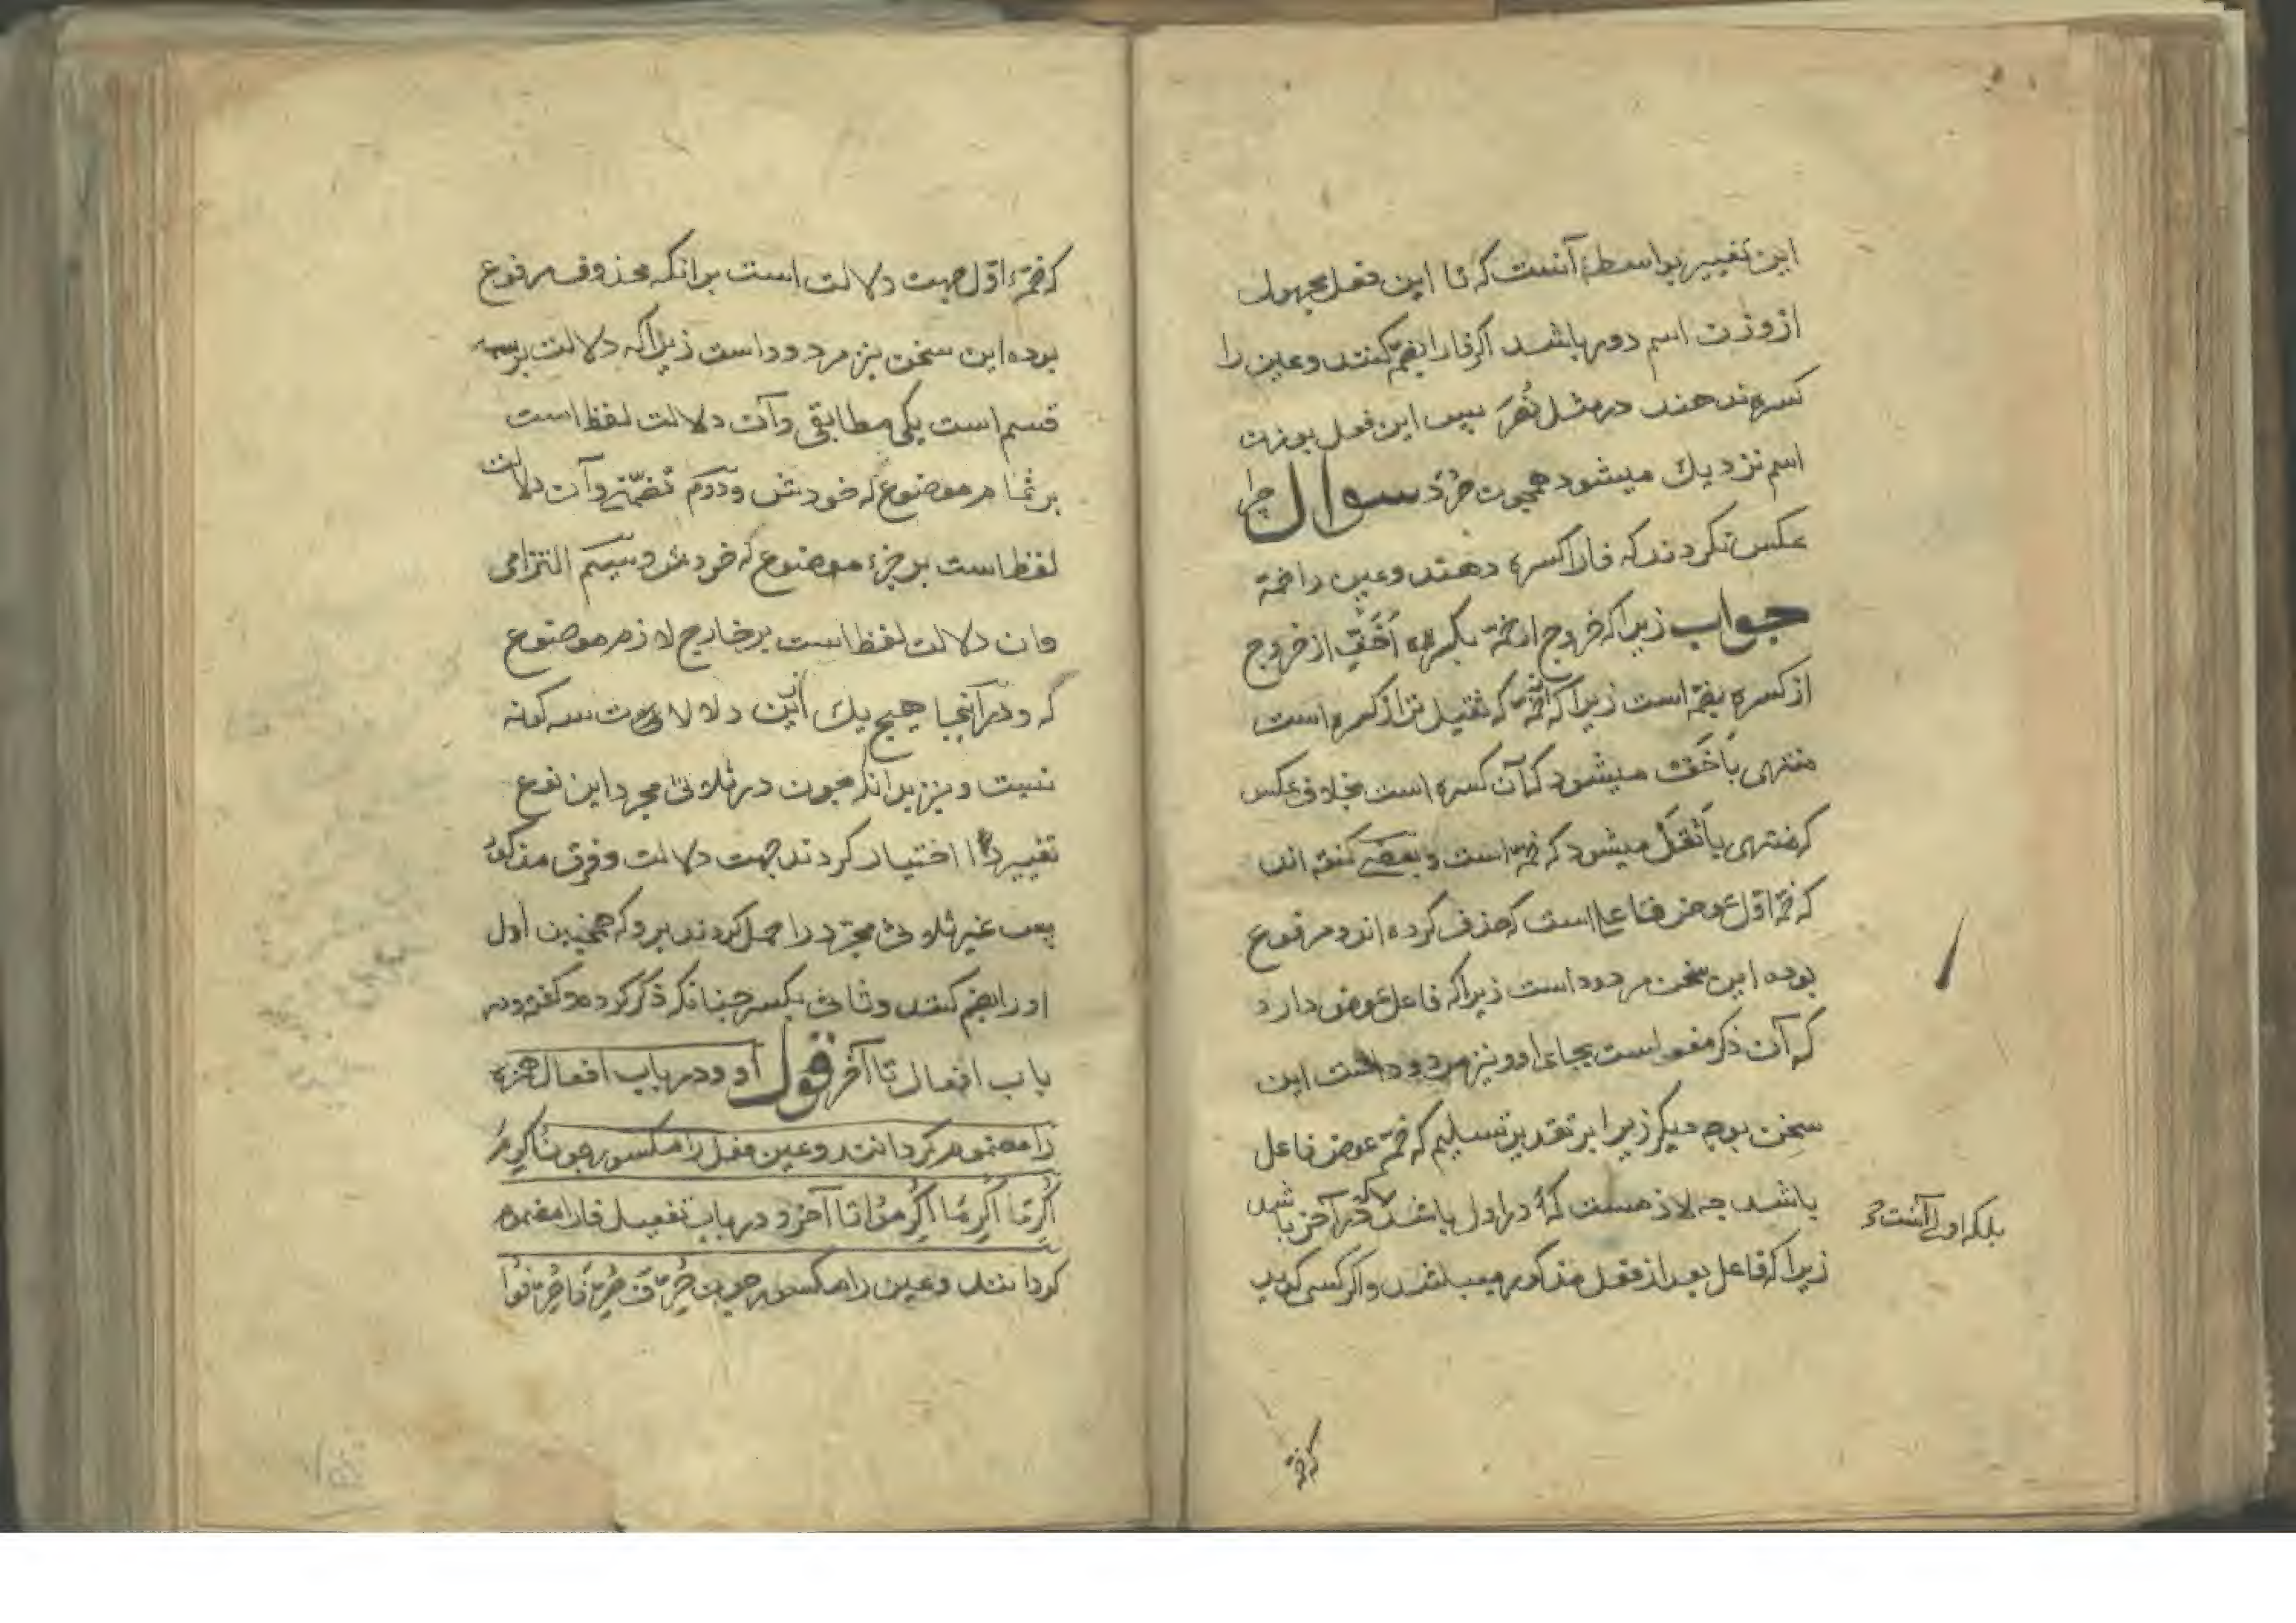 این تغییر بواسطهٔ آنست که تا این فعل مجهول
از وزن اسم دور باشد اگر فا را بضم کنند و عین را
کسره ندهند در مثل نُصَرَ پس این فعل بوزن
اسم نزدیك میشود همچون صُرَد سوال چرا
عکس نکردند که فا را کسره دهند و عین را ضمّه
جواب زیرا که خروج از ضمّه بکسره اَخَفّ از خروج
از کسره بضمّه است زیرا که از ضمّه که ثقیل تر از کسره است
منتهی باَخَفّ میشود که آن کسره است بخلاف عکس
که منتهی باَثقَل میشود که ضمّه است و بعضے گفته اند
که ضمّه اوّل عوض فاعل است که حذف کرده اند و مرفوع
بوده این سخن مردود است زیرا که فاعل عوض دارد
که آن ذکر مفعول است بجای او و نیز مردود است این
سخن بوجه دیگر زیرا بر تقدیر تسلیم که ضمّه عوض فاعل
باشد چه لازمست که در اول باشد که در آخر باشد
بلکه اولے آنست که
زیرا که فاعل بعد از فعل مذکور میباشد و اگر کسی گوید
که ضمّه
که ضمّهٔ اوّل جهت دلالت است برانکه محذوف مرفوع
بوده این سخن نیز مردود است زیرا که دلالت بر سه
قسم است یکی مطابقی و آن دلالت لفظ است
بر تمام موضوع له خودش و دوّم تضمّنی و آن دلالت
لفظ است بر جزء موضوع له خودش و سیّم التزامی
و ان دلالت لفظ است بر خارج لازم موضوع
له و در آنجا هیچ یك ازین دلالات سه کونه
نیست و نیز بدانکه چون در ثلاثی مجرد این نوع
تغییر را اختیار کردند جهت دلالت و فرق مذکور
پس غیر ثلاثی مجرّد را حمل کردند برو که همچنین اول
او را بضم کنند و ثانی بکسر چنانکه ذکر کرده و گفته در
باب افعال تا آخر قول او و در باب افعال همزه
را مضموم گردانند و عین فعل را مکسور چون اُکرِمَ
اُکرِمَا اُکرِمُوا تا آخر و در باب تفعیل فا را مضموم
گردانند و عین را مکسور چون صُرِّفَ صُرِّفَا صُرِّفُوا